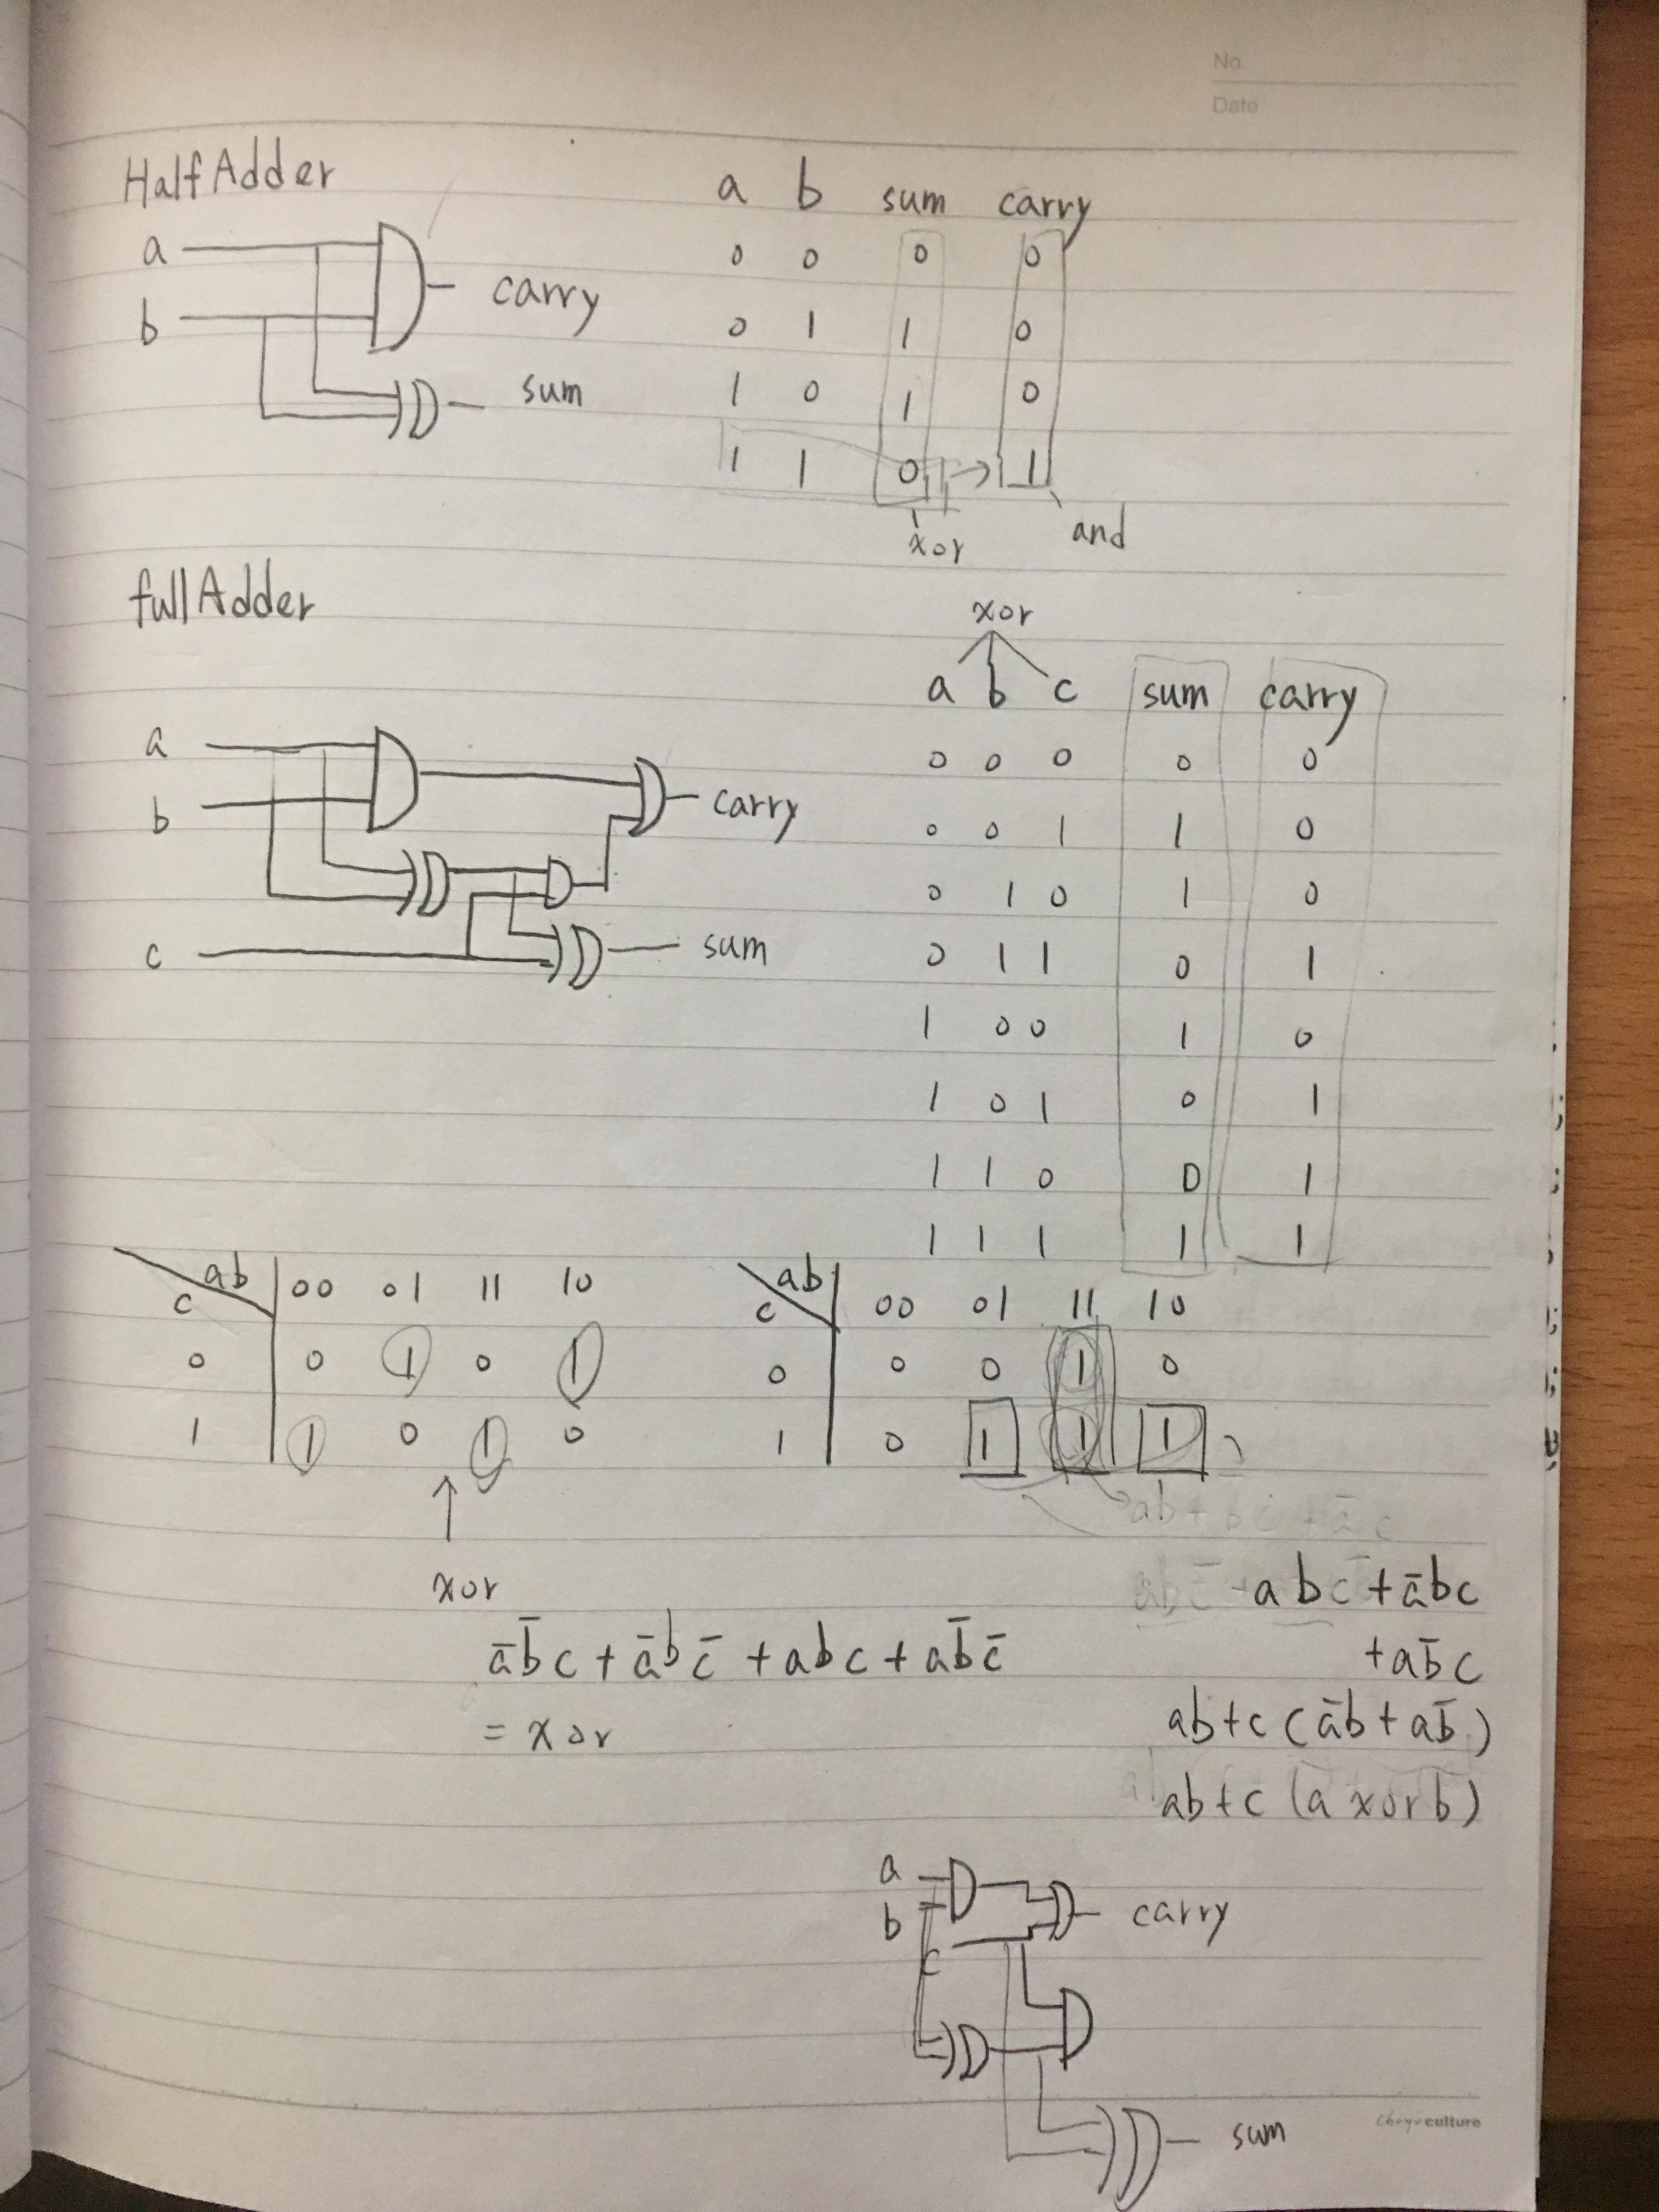 No
Date
Half Adder
a b sum carry
a
b
carry
sum
0 0 0 0
0 1 1 0
1 0 1 0
1 1 0 → 1
xor
and
full Adder
xor
a b c sum carry
a
b
c
carry
sum
0 0 0 0 0
0 0 1 1 0
0 1 0 1 0
0 1 1 0 1
1 0 0 1 0
1 0 1 0 1
1 1 0 0 1
1 1 1 1 1
ab 00 01 11 10
c
0 0 1 0 1
1 1 0 1 0
xor
a̅b̅c + a̅bc̅ + abc + ab̅c̅
= xor
ab 00 01 11 10
c
0 0 0 1 0
1 0 1 1 1
abc + a̅bc
+ ab̅c
ab+c (a̅b + ab̅)
ab+c (a xor b)
a
b
c
carry
sum
culture